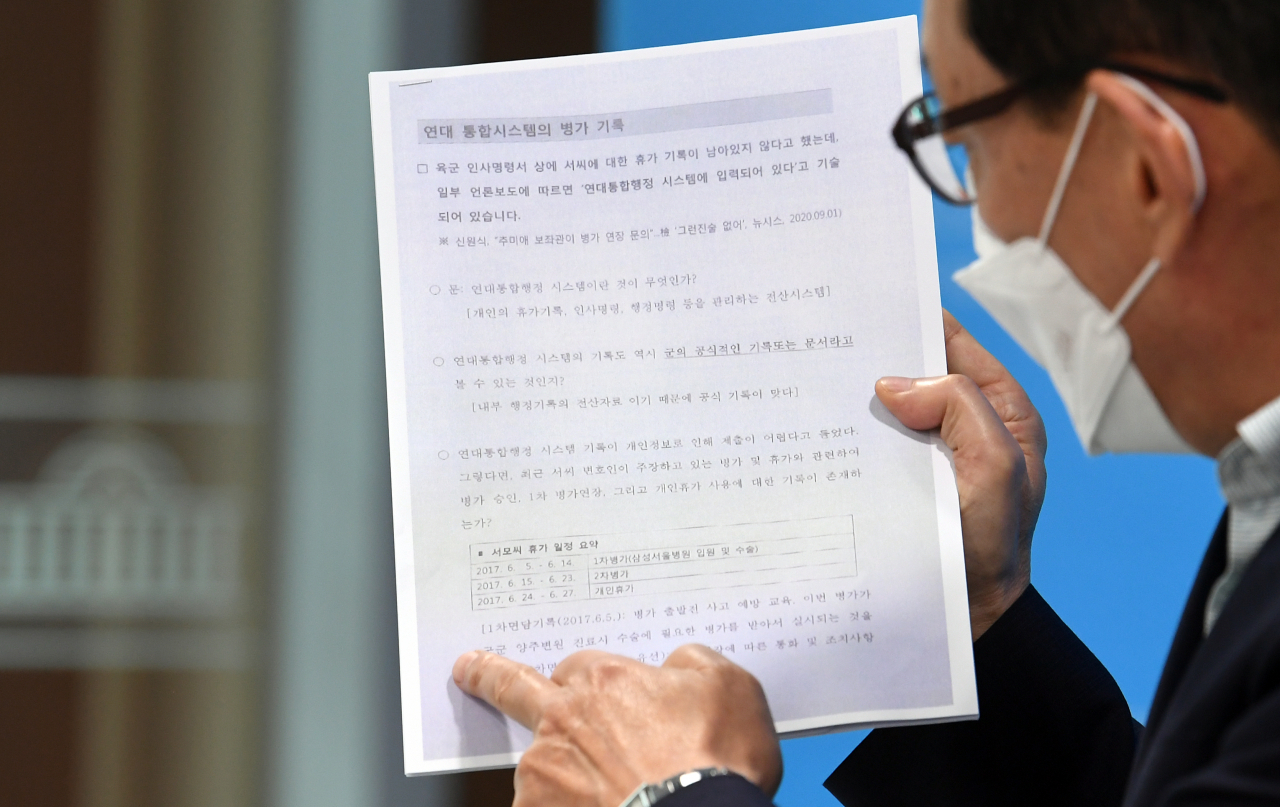 연대 통합시스템의 병가 기록
□ 육군 인사명령서 상에 서씨에 대한 휴가 기록이 남아있지 않다고 했는데,
일부 언론보도에 따르면 '연대통합행정 시스템에 입력되어 있다'고 기술
되어 있습니다.
※ 신원식, "추미애 보좌관이 병가 연장 문의"…檢 '그런진술 없어', 뉴시스, 2020.09.01)
○ 문: 연대통합행정 시스템이란 것이 무엇인가?
[개인의 휴가기록, 인사명령, 행정명령 등을 관리하는 전산시스템]
○ 연대통합행정 시스템의 기록도 역시 군의 공식적인 기록또는 문서라고
볼 수 있는 것인지?
[내부 행정기록의 전산자료 이기 때문에 공식 기록이 맞다]
○ 연대통합행정 시스템 기록이 개인정보로 인해 제출이 어렵다고 들었다.
그렇다면, 최근 서씨 변호인이 주장하고 있는 병가 및 휴가와 관련하여
병가 승인, 1차 병가연장, 그리고 개인휴가 사용에 대한 기록이 존재하
는가?
▪ 서모씨 휴가 일정 요약
2017. 6. 5. - 6. 14. 1차병가(삼성서울병원 입원 및 수술)
2017. 6. 15. - 6. 23. 2차병가
2017. 6. 24. - 6. 27. 개인휴가
[1차면담기록(2017.6.5.): 병가 출발전 사고 예방 교육, 이번 병가가
국군 양주병원 진료사 수술에 필요한 병가를 받아서 실시되는 것을
유선) 따른 통화 및 조치사항